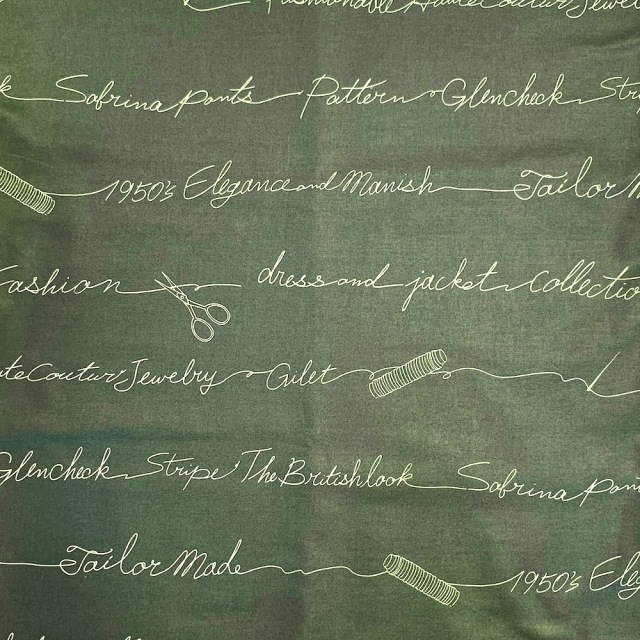 Fashionable Haute Couture Jewel
k Sabrina pants Pattern Glencheck Stri
1950's Elegance and Manish Tailor M
Fashion dress and jacket collectio
ute Coutur Jewelry Gilet
Glencheck Stripe The British look Sabrina pan
Tailor Made 1950's Ele